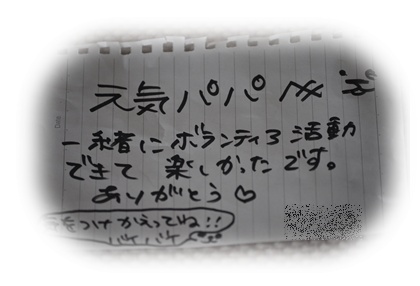 元気パパへ
一緒にボランティア活動
できて 楽しかったです。
ありがとう♡
気をつけてかえってね!!
バケバケ